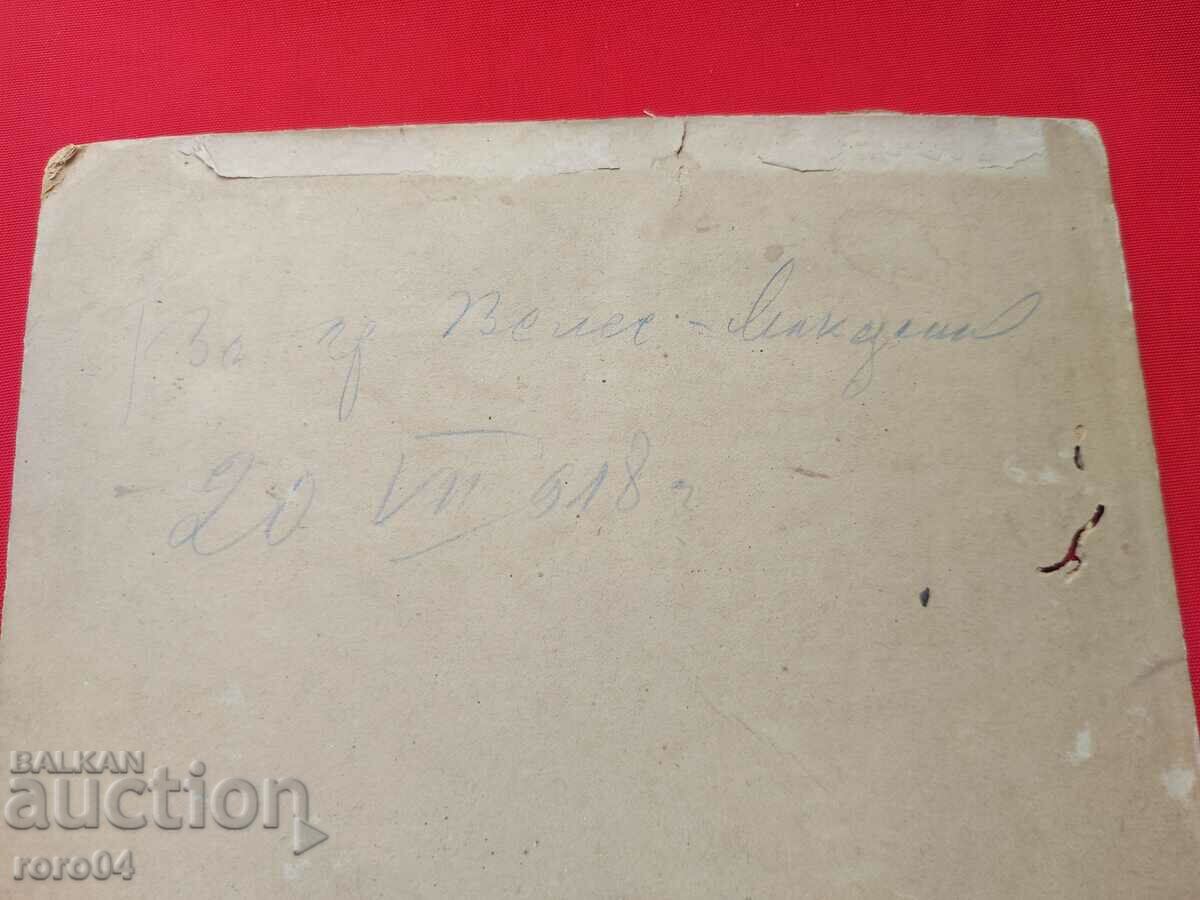 гр Велес - Макдони
20 VII 918 г
BALKAN
auction
roro04